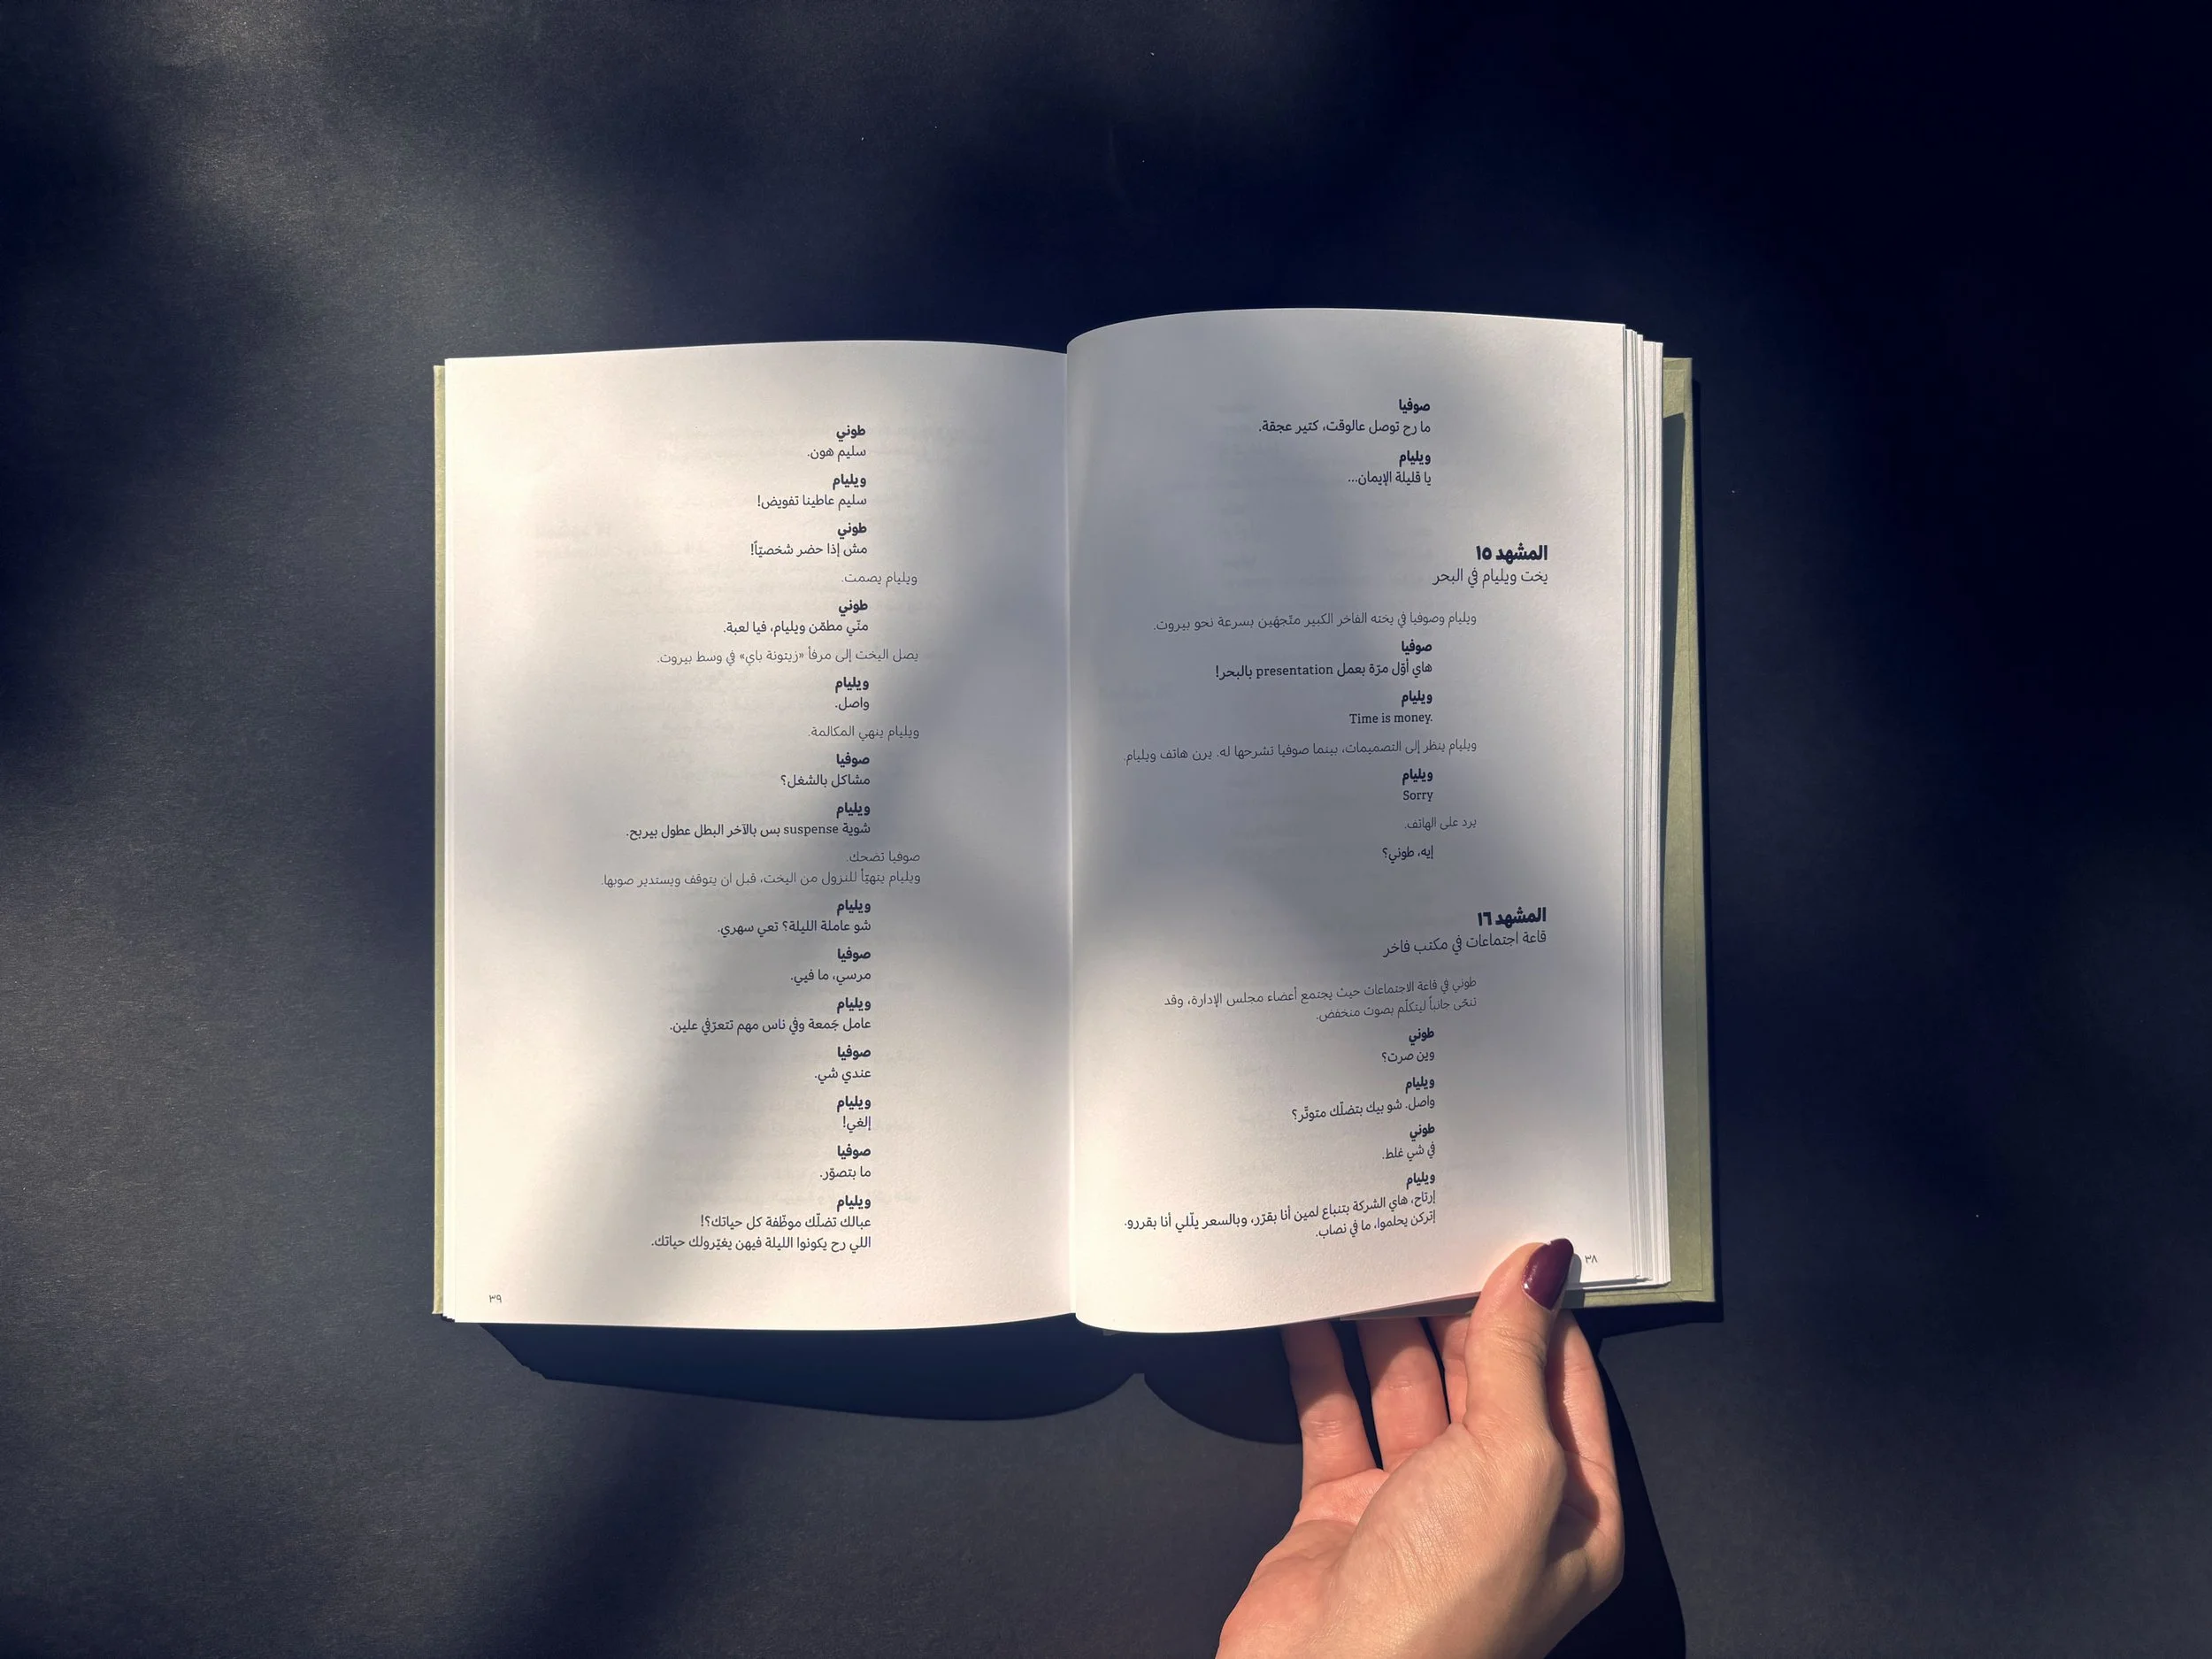 صوفيا
ما رح توصل عالوقت، كتير عجقة.
ويليام
يا قليلة الإيمان...
المشهد ١٥
يخت ويليام في البحر
ويليام وصوفيا في يخته الفاخر الكبير متّجهَين بسرعة نحو بيروت.
صوفيا
هاي أوّل مرّة بعمل presentation بالبحر!
ويليام
Time is money.
ويليام ينظر إلى التصميمات، بينما صوفيا تشرحها له. يرن هاتف ويليام.
ويليام
Sorry
يرد على الهاتف.
إيه، طوني؟
المشهد ١٦
قاعة اجتماعات في مكتب فاخر
طوني في قاعة الاجتماعات حيث يجتمع أعضاء مجلس الإدارة، وقد
تنحّى جانباً ليتكلّم بصوت منخفض.
طوني
وين صرت؟
ويليام
واصل. شو بيك بتضلّك متوتّر؟
طوني
في شي غلط.
ويليام
إرتاح، هاي الشركة بتنباع لمين أنا بقرّر، وبالسعر يلّلي أنا بقررو.
إتركن يحلموا، ما في نصاب.
٣٨
طوني
سليم هون.
ويليام
سليم عاطينا تفويض!
طوني
مش إذا حضر شخصيّاً!
ويليام يصمت.
طوني
منّي مطمّن ويليام، فيا لعبة.
يصل اليخت إلى مرفأ «زيتونة باي» في وسط بيروت.
ويليام
واصل.
ويليام ينهي المكالمة.
صوفيا
مشاكل بالشغل؟
ويليام
شوية suspense بس بالآخر البطل عطول بيربح.
صوفيا تضحك.
ويليام يتهيّأ للنزول من اليخت، قبل ان يتوقف ويستدير صوبها.
ويليام
شو عاملة الليلة؟ تعي سهري.
صوفيا
مرسي، ما فيي.
ويليام
عامل جَمعة وفي ناس مهم تتعرّفي علين.
صوفيا
عندي شي.
ويليام
إلغي!
صوفيا
ما بتصوّر.
ويليام
عبالك تضلّك موظّفة كل حياتك؟!
اللي رح يكونوا الليلة فيهن يغيّرولك حياتك.
٣٩